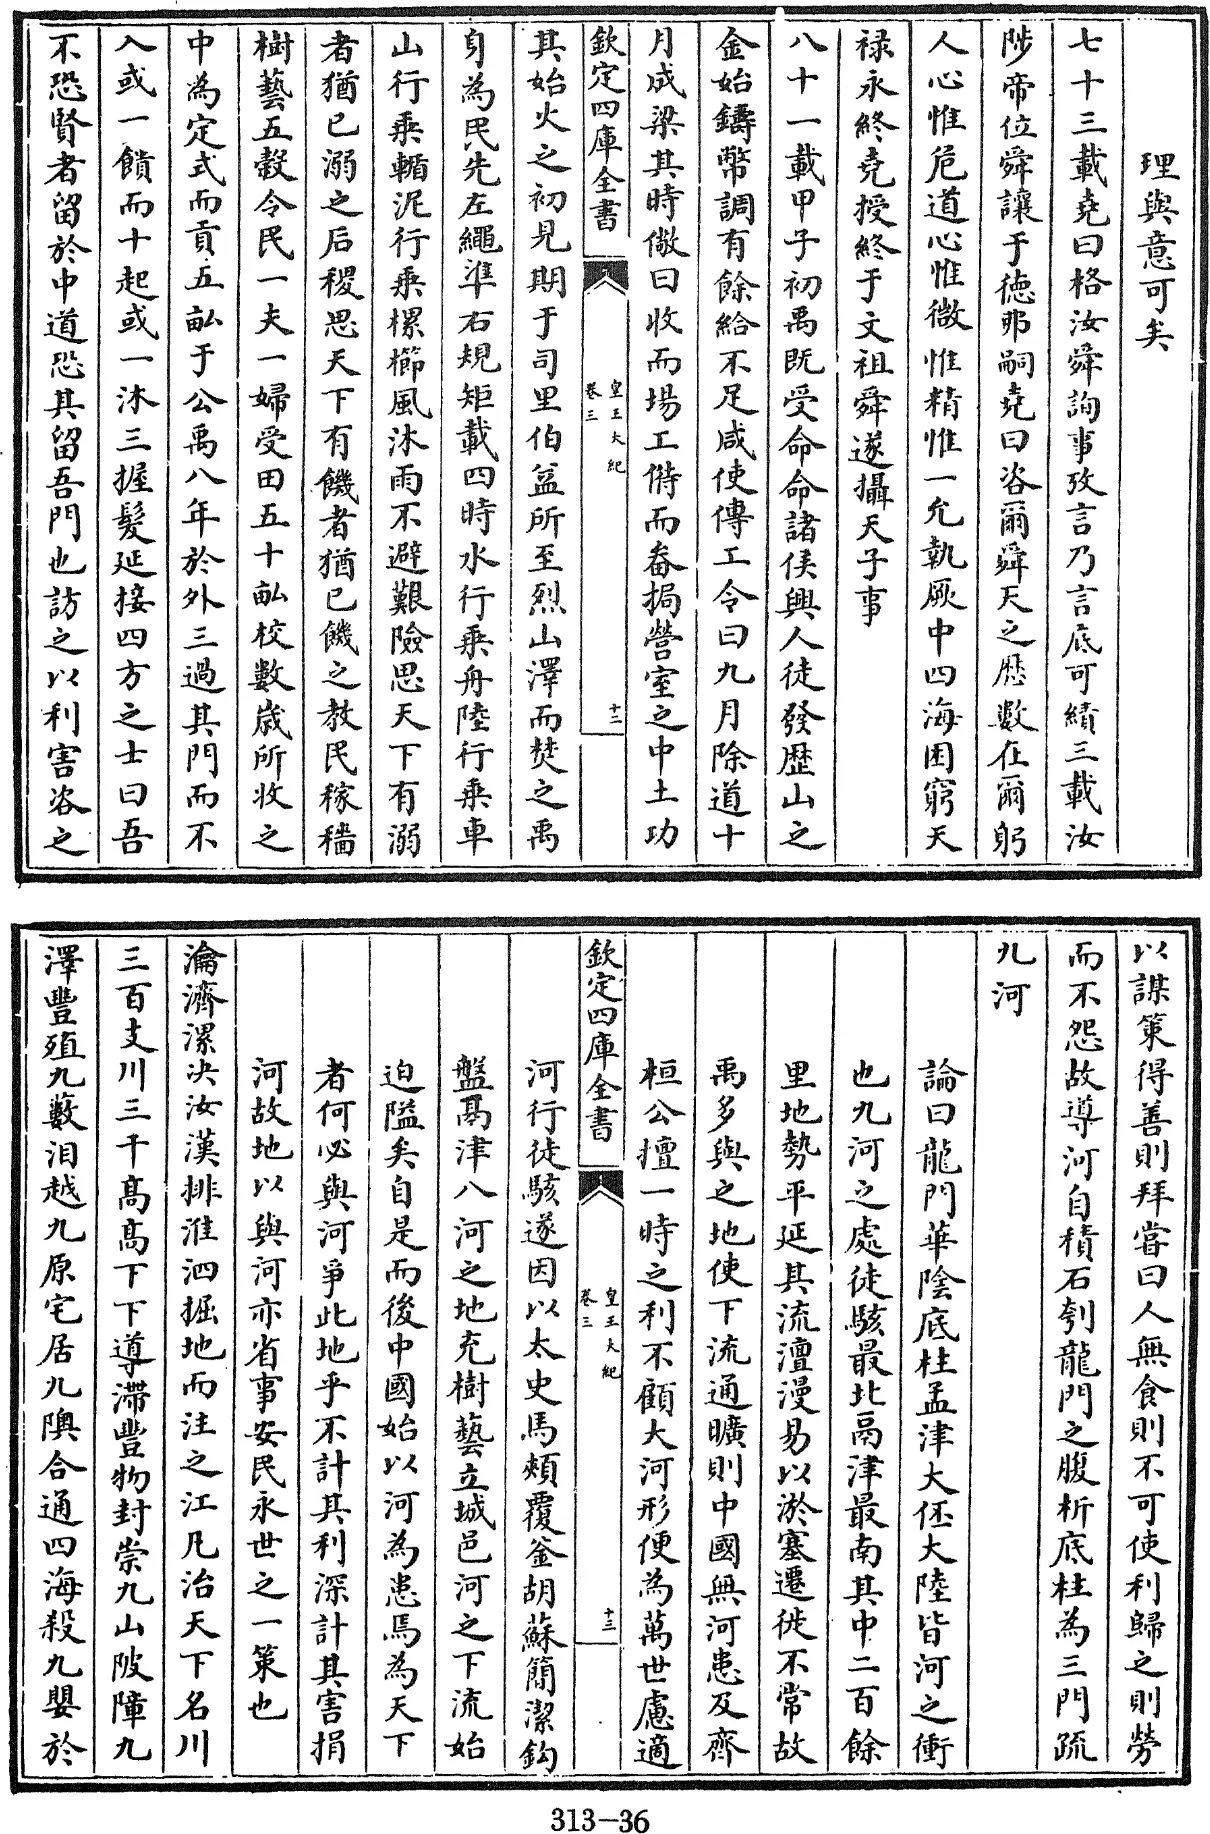 理與意可矣
七十三載堯曰格汝舜詢事攷言乃言底可績三載汝
陟帝位舜讓于德弗嗣堯曰咨爾舜天之厯數在爾躬
人心惟危道心惟微惟精惟一允執厥中四海困窮天
禄永終堯授終于文祖舜遂攝天子事
八十一載甲子初禹既受命命諸侯興人徒發歴山之
金始鑄幣調有餘給不足咸使傳工令曰九月除道十
月成梁其時儆曰收而場工偫而畚挶營室之中土功
欽定四庫全書
皇王大紀
卷三
十二
其始火之初見期于司里伯益所至烈山澤而焚之禹
身為民先左繩準右規矩載四時水行乘舟陸行乘車
山行乘輴泥行乘樏櫛風沐雨不避艱險思天下有溺
者猶已溺之后稷思天下有饑者猶已饑之教民稼穡
樹藝五穀令民一夫一婦受田五十畝校數歲所收之
中為定式而貢五畝于公禹八年於外三過其門而不
入或一饋而十起或一沐三握髮延接四方之士曰吾
不恐賢者留於中道恐其留吾門也訪之以利害咨之
以謀策得善則拜嘗曰人無食則不可使利歸之則勞
而不怨故導河自積石刳龍門之腹析底柱為三門疏
九河
論曰龍門華陰底柱孟津大伾大陸皆河之衝
也九河之處徒駭最北鬲津最南其中二百餘
里地勢平延其流澶漫易以淤塞遷徙不常故
禹多與之地使下流通曠則中國無河患及齊
桓公擅一時之利不顧大河形便為萬世慮適
欽定四庫全書
皇王大紀
卷三
十三
河行徒駭遂因以太史馬頰覆釜胡蘇簡潔鈎
盤鬲津八河之地充樹藝立城邑河之下流始
迫隘矣自是而後中國始以河為患焉為天下
者何必與河爭此地乎不計其利深計其害捐
河故地以與河亦省事安民永世之一策也
瀹濟漯决汝漢排淮泗掘地而注之江凡治天下名川
三百支川三千高高下下導滯豐物封崇九山陂障九
澤豐殖九藪汨越九原宅居九隩合通四海殺九嬰於
313-36